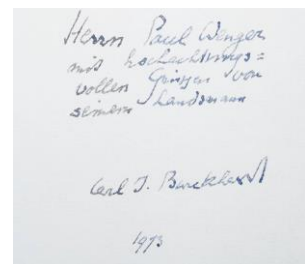 Herrn Paul Wenger
mit hochachtungs=
vollen Grüssen von
seinem Landsmann
Carl J. Burckhardt
1973